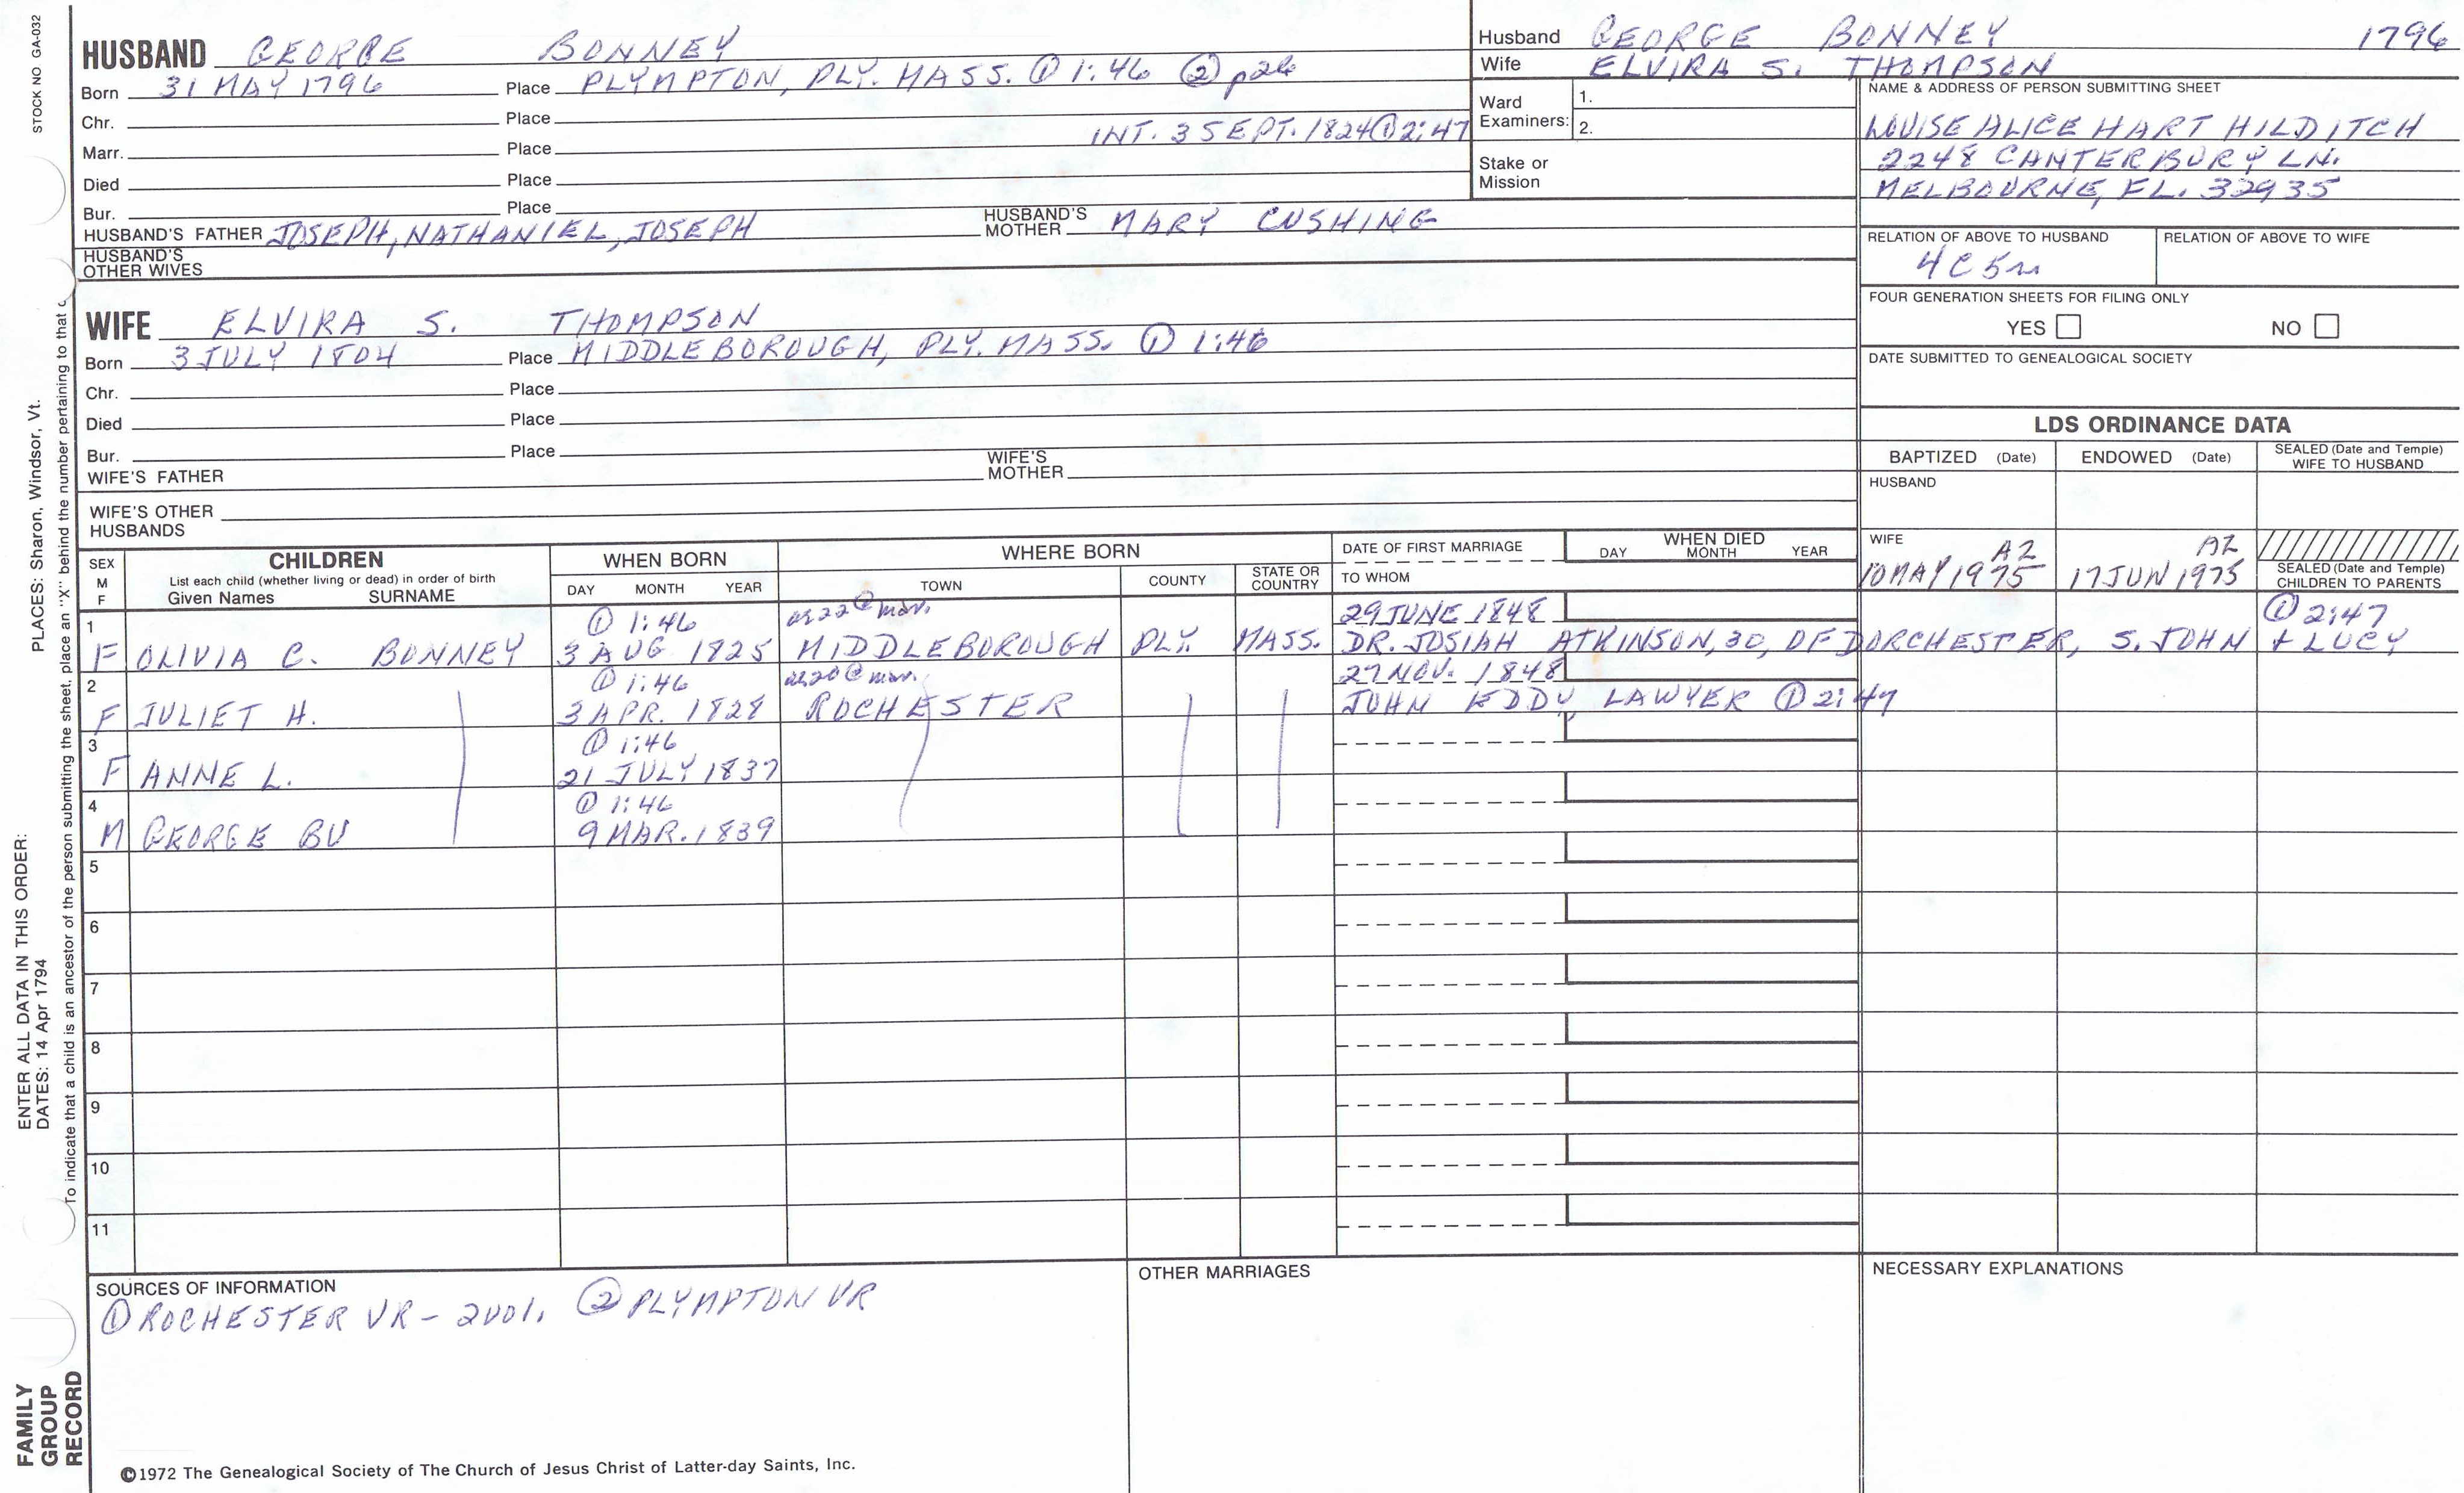 STOCK NO GA-032
HUSBAND GEORGE BONNEY
Born 31 MAY 1796 Place PLYMPTON, PLY. MASS. ① 1:46 ② p26
Chr. Place
INT. 3 SEPT. 1824 ① 2:47
Marr. Place
Died Place
Bur. Place
HUSBAND'S FATHER JOSEPH, NATHANIEL, JOSEPH HUSBAND'S MOTHER MARY CUSHING
HUSBAND'S OTHER WIVES
Husband GEORGE BONNEY 1796
Wife ELVIRA S. THOMPSON
Ward Examiners: 1.
2.
Stake or Mission
NAME & ADDRESS OF PERSON SUBMITTING SHEET
LOUISE ALICE HART HILDITCH
2248 CANTERBURY LN.
MELBOURNE, FL. 32935
RELATION OF ABOVE TO HUSBAND RELATION OF ABOVE TO WIFE
4C5r
FOUR GENERATION SHEETS FOR FILING ONLY
YES NO
DATE SUBMITTED TO GENEALOGICAL SOCIETY
WIFE ELVIRA S. THOMPSON
Born 3 JULY 1804 Place MIDDLEBOROUGH, PLY. MASS. ① 1:46
Chr. Place
Died Place
Bur. Place
WIFE'S FATHER WIFE'S MOTHER
WIFE'S OTHER HUSBANDS
LDS ORDINANCE DATA
BAPTIZED (Date) ENDOWED (Date) SEALED (Date and Temple) WIFE TO HUSBAND
HUSBAND
WIFE AZ AZ
10 MAY 1975 17 JUN 1975
SEALED (Date and Temple) CHILDREN TO PARENTS
SEX M F
CHILDREN
List each child (whether living or dead) in order of birth
Given Names SURNAME
WHEN BORN
DAY MONTH YEAR
WHERE BORN
TOWN COUNTY STATE OR COUNTRY
DATE OF FIRST MARRIAGE
TO WHOM
WHEN DIED
DAY MONTH YEAR
1 ① 1:46 ae 22 @ mar. 29 JUNE 1848 ① 2:47
F OLIVIA C. BONNEY 3 AUG 1825 MIDDLEBOROUGH PLY. MASS. DR. JOSIAH ATKINSON, 30, OF DORCHESTER, S. JOHN + LUCY
2 ① 1:46 ae 20 @ mar. 27 NOV. 1848
F JULIET H. 3 APR. 1828 ROCHESTER JOHN EDDY, LAWYER ① 2:47
3 ① 1:46
F ANNE L. 21 JULY 1837
4 ① 1:46
M GEORGE BU 9 MAR. 1839
5
6
7
8
9
10
11
SOURCES OF INFORMATION
① ROCHESTER VR - 2vol, ② PLYMPTON VR
OTHER MARRIAGES
NECESSARY EXPLANATIONS
©1972 The Genealogical Society of The Church of Jesus Christ of Latter-day Saints, Inc.
FAMILY GROUP RECORD
ENTER ALL DATA IN THIS ORDER:
DATES: 14 Apr 1794
PLACES: Sharon, Windsor, Vt.
To indicate that a child is an ancestor of the person submitting the sheet, place an "X" behind the number pertaining to that c